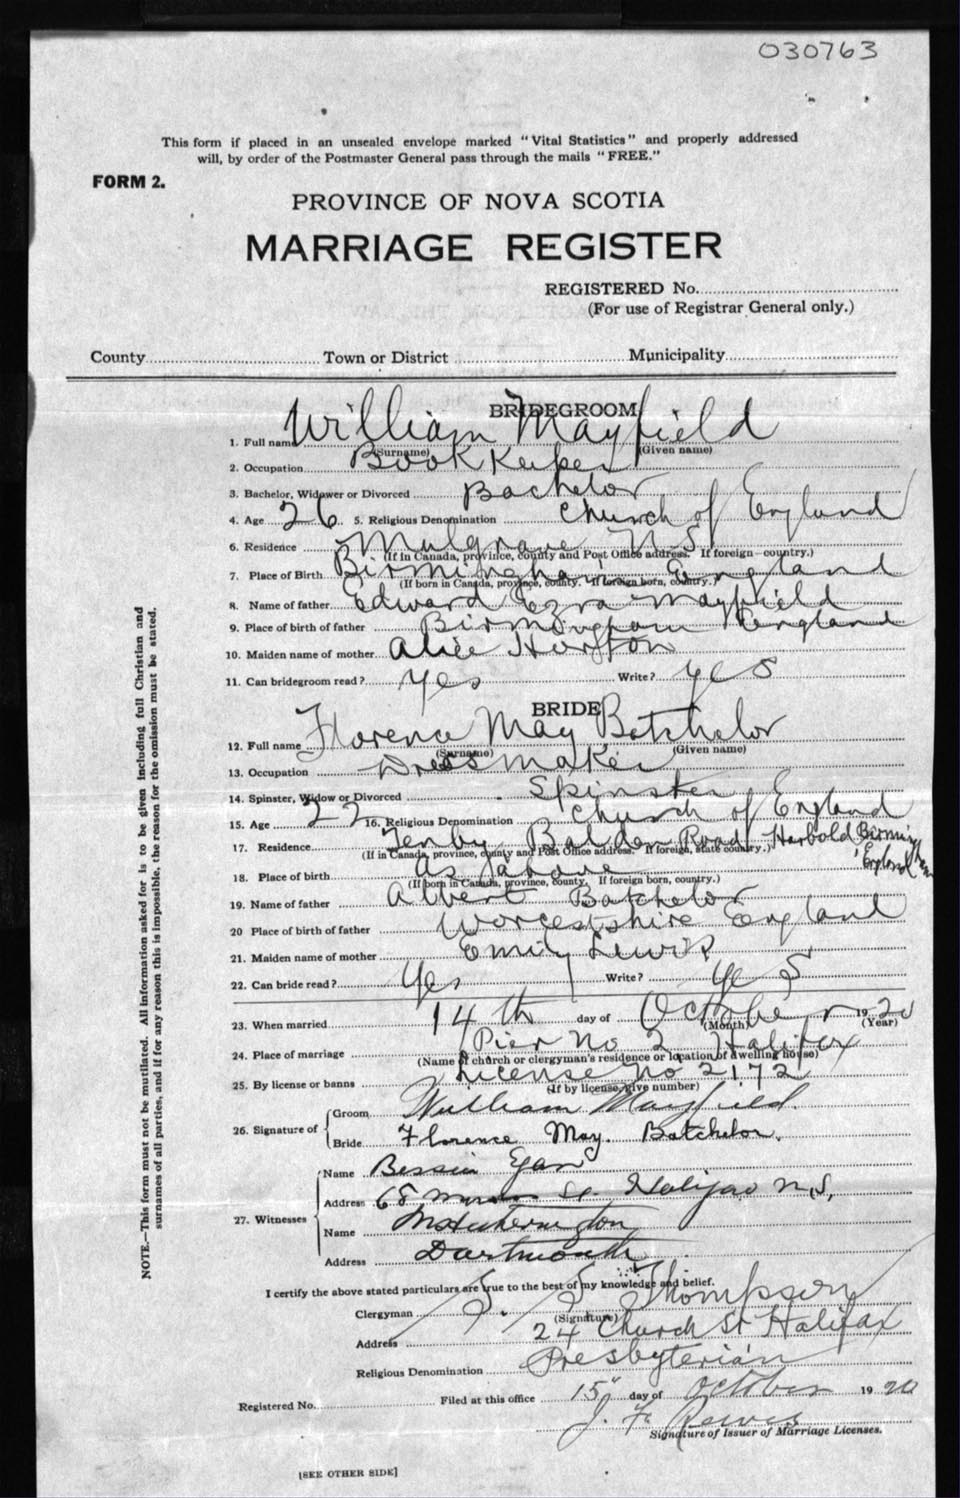 030763
This form if placed in an unsealed envelope marked "Vital Statistics" and properly addressed
will, by order of the Postmaster General pass through the mails "FREE."
FORM 2.
PROVINCE OF NOVA SCOTIA
MARRIAGE REGISTER
REGISTERED No.
(For use of Registrar General only.)
County Town or District Municipality
BRIDEGROOM
1. Full name William Mayfield
(Surname) (Given name)
2. Occupation Book Keeper
3. Bachelor, Widower or Divorced Bachelor
4. Age 26 5. Religious Denomination Church of England
6. Residence Mulgrave N S
(If in Canada, province, county and Post Office address. If foreign—country.)
7. Place of Birth Birmingham England
(If born in Canada, province, county. If foreign born, country.)
8. Name of father Edward Ezra Mayfield
9. Place of birth of father Birmingham England
10. Maiden name of mother Alice Horton
11. Can bridegroom read? Yes Write? yes
BRIDE
12. Full name Florence May Batchelor
(Surname) (Given name)
13. Occupation Dressmaker
14. Spinster, Widow or Divorced Spinster
15. Age 22 16. Religious Denomination Church of England
17. Residence Tenby Balden Road Harbold Birmingham England
(If in Canada, province, county and Post Office address. If foreign, state country.)
18. Place of birth as above
(If born in Canada, province, county. If foreign born, country.)
19. Name of father Albert Batchelor
20 Place of birth of father Worcestshire England
21. Maiden name of mother Emily Lewis
22. Can bride read? Yes Write? yes
23. When married 14th day of October 1920
(Month) (Year)
24. Place of marriage Pier No 2 Halifax
(Name of church or clergyman's residence or location of dwelling house)
25. By license or banns License No 2172
(If by license, give number)
26. Signature of Groom William Mayfield.
Bride Florence May. Batchelor.
27. Witnesses Name Bessie Egan
Address 68 St. Halifax N.S.
Name
Address Dartmouth
I certify the above stated particulars are true to the best of my knowledge and belief.
Clergyman Thompson
(Signature)
Address 24 Church St Halifax
Religious Denomination Presbyterian
Registered No. Filed at this office 15" day of October 1920
J. F.
Signature of Issuer of Marriage Licenses.
[SEE OTHER SIDE]
NOTE.—This form must not be mutilated. All information asked for is to be given including full Christian and
surnames of all parties, and if for any reason this is impossible, the reason for the omission must be stated.